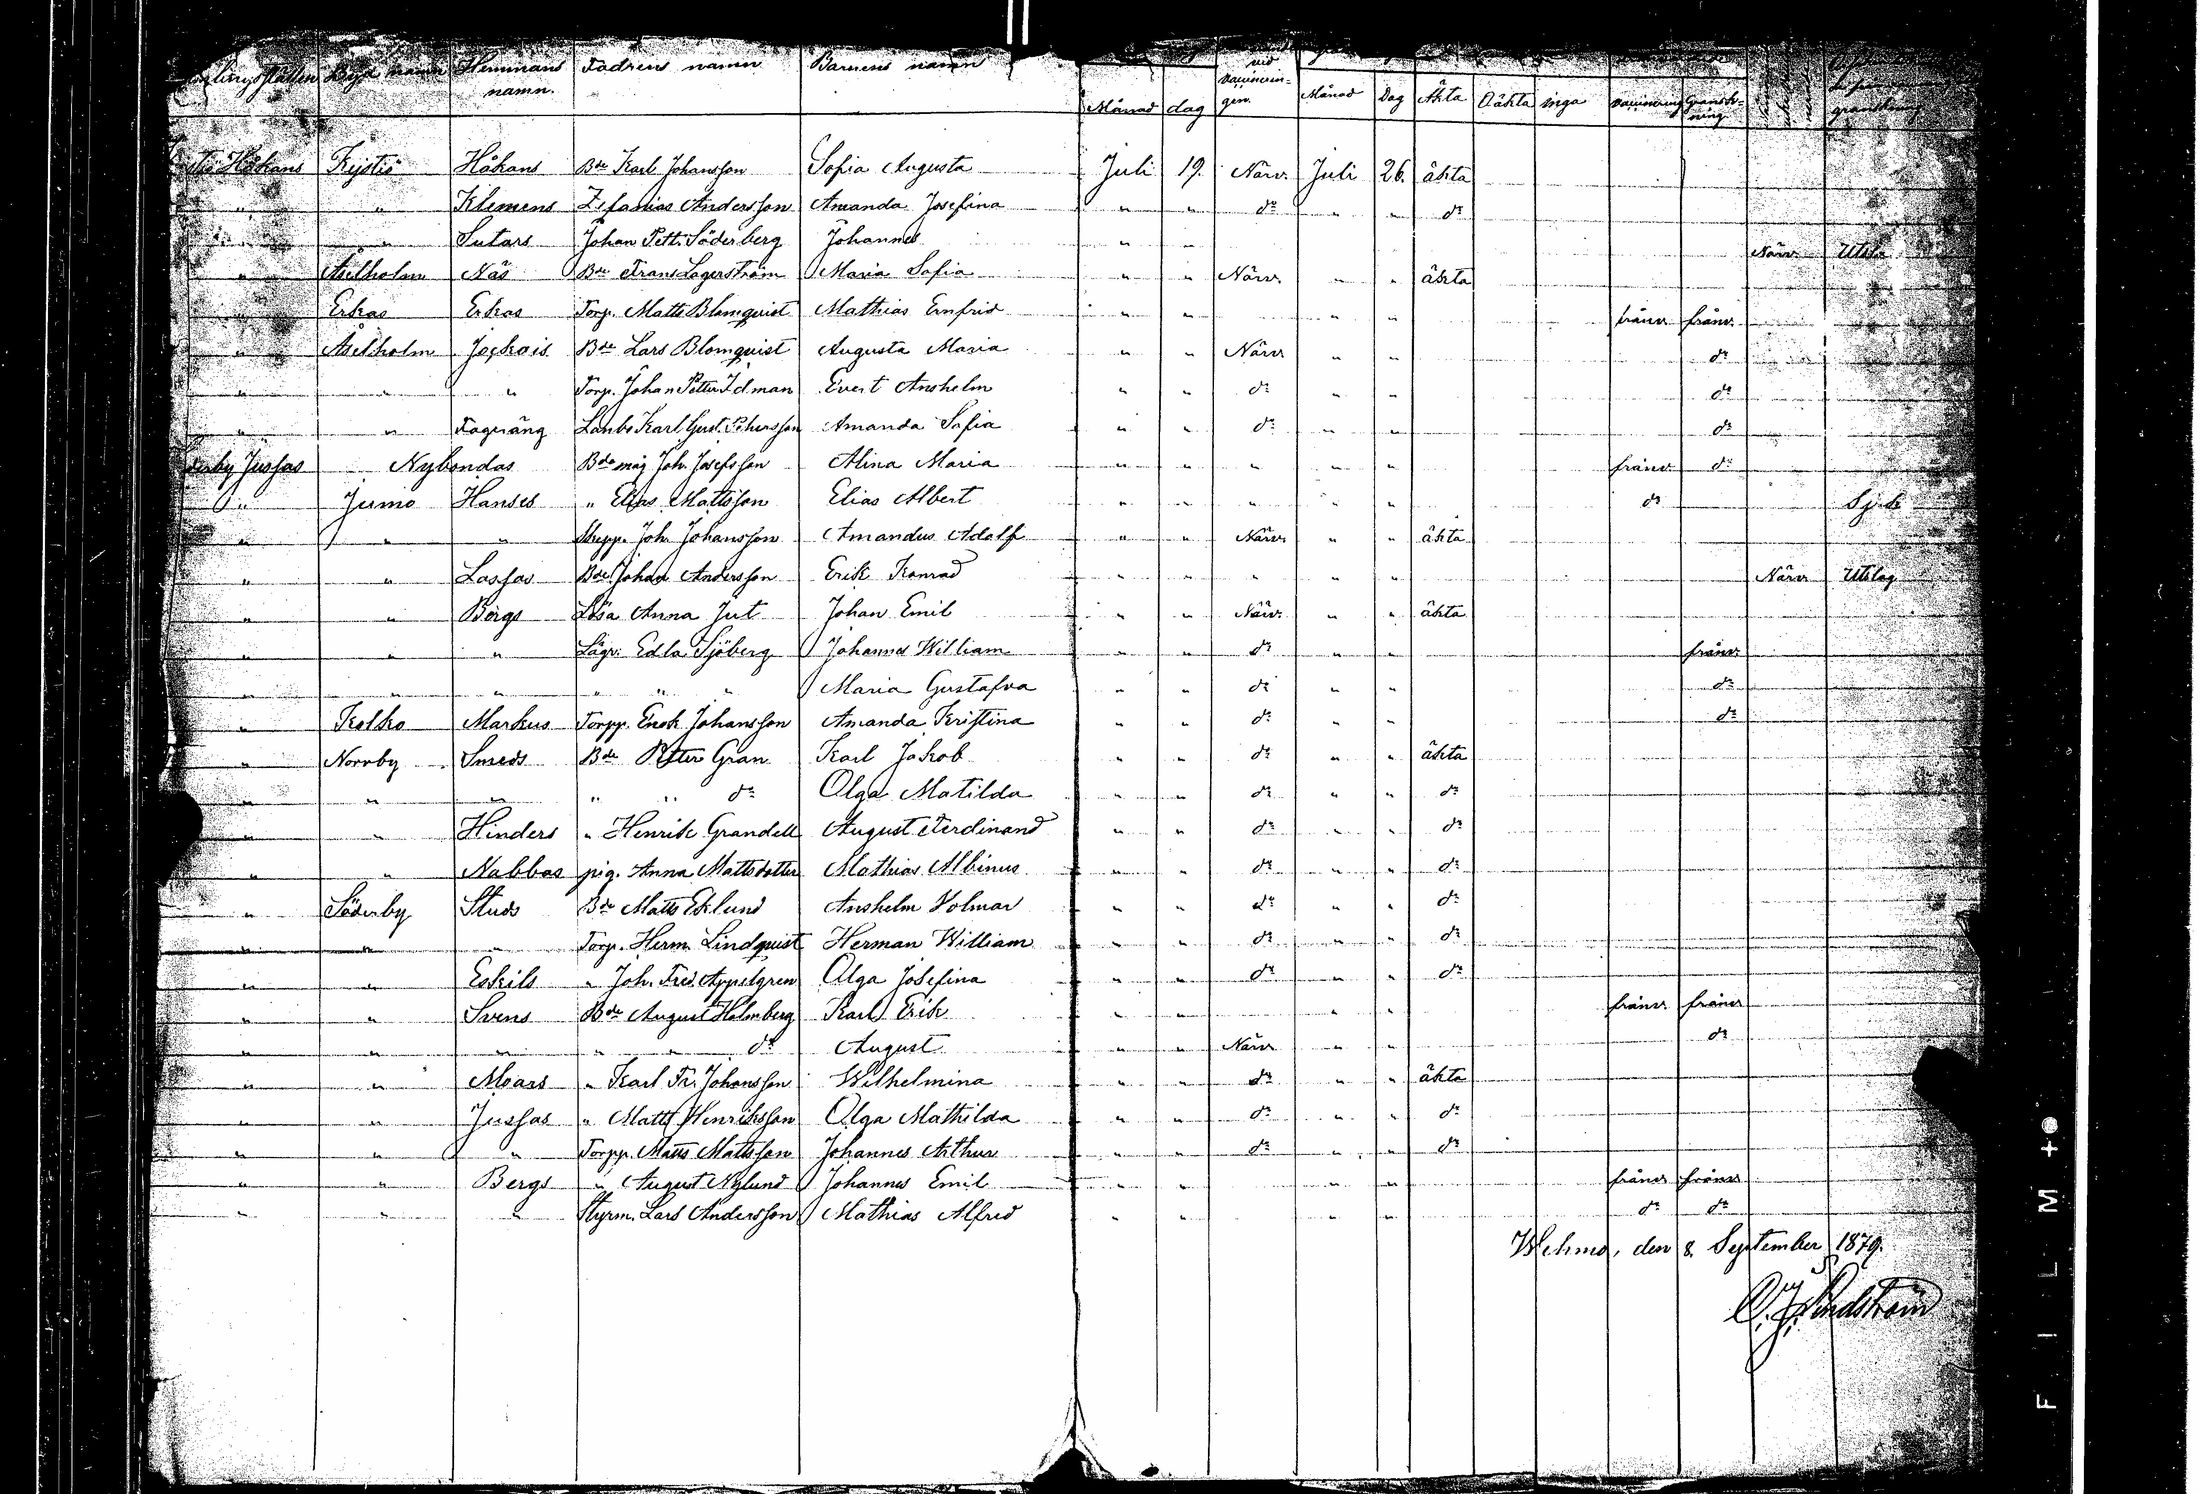 Byns namn Hemmans namn. Fadrens namn Barnens namn Månad dag vid vaccineringen. Månad Dag Äkta Oäkta inga vaccinering granskning
Håkans Kystiö Håkans Bde Karl Johansson Sofia Augusta Juli 19. Närv. Juli 26. äkta
" " Klemens Zefanias Andersson Amanda Josefina " " do " " do
" " Sutars Johan Pett. Söderberg Johannes " " Närv. Utslag
" Åselholm Näs Bde Frans Lagerström Maria Sofia " " Närv. " " äkta
" Erkas Erkas Torp. Matts Blomquist Mathias Ernfrid " " " " frånv. frånv.
" Åselholm Jockois Bde Lars Blomquist Augusta Maria " " Närv. " " do
" " " Torp. Johan Petter Idman Evert Anshelm " " do " " do
" " Fageräng Lanbo Karl Gust. Petersson Amanda Sofia " " do " " do
Jussas Nybondas Bde måg Joh. Josefsson Alina Maria " " " " " frånv. do
" Jumo Hanses " Elias Mattsson Elias Albert " " " " " do Sjuk
" " " Skepp. Joh. Johansson Amandus Adolf " " Närv. " " äkta
" " Lassas Bde Johan Andersson Erik Konrad " " " " " Närv. Utslag
" " Bergs Lösa Anna Jut Johan Emil " " Närv. " " äkta
" " " Lägr. Edla Sjöberg Johannes William " " do " " frånv.
" " " " " " Maria Gustafva " " do " " do
" Kolko Markus Torpp. Enok Johansson Amanda Kristina " " do " " do
" Norrby Smeds Bde Petter Gran Karl Jakob " " do " " äkta
" " " " " do Olga Matilda " " do " " do
" " Hinders " Henrik Grandell August Ferdinand " " do " " do
" " Nabbas pig. Anna Mattsdotter Mathias Albinus " " do " " do
" Söderby Studs Bde Matts Eklund Anshelm Volmar " " do " " do
" " " Torp. Herm. Lindquist Herman William " " do " " do
" " Eskils " Joh. Fred. Appelgren Olga Josefina " " do " " do
" " Svens Bde August Holmberg Karl Erik " " " " frånv. frånv.
" " " " " do August " " Närv. " " do
" " Moars " Karl Fr. Johansson Wilhelmina " " do " " äkta
" " Jussas " Matts Henriksson Olga Mathilda " " do " " do
" " " Torpp. Matts Mattsson Johannes Arthur " " do " " do
" " Bergs " August Nylund Johannes Emil " " " " frånv. frånv.
" " " Styrm. Lars Andersson Mathias Alfred " " " " do do
Wehmo, den 8 September 1879.
FILM